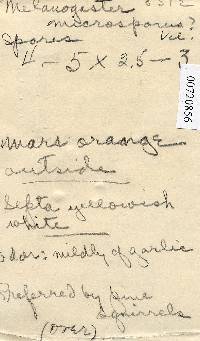 Melanogaster 8372
microsporus?
Spores
4 - 5 x 2.5 - 3
mars orange
outside
Septa yellowish
white
odor: mildly of garlic
Preferred by pine
squirrels
(over)
00720856